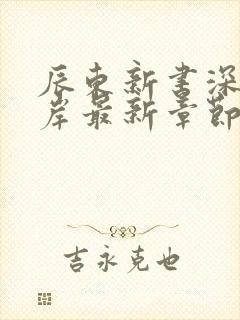 辰东新书深
岸最新章節
吉永克也